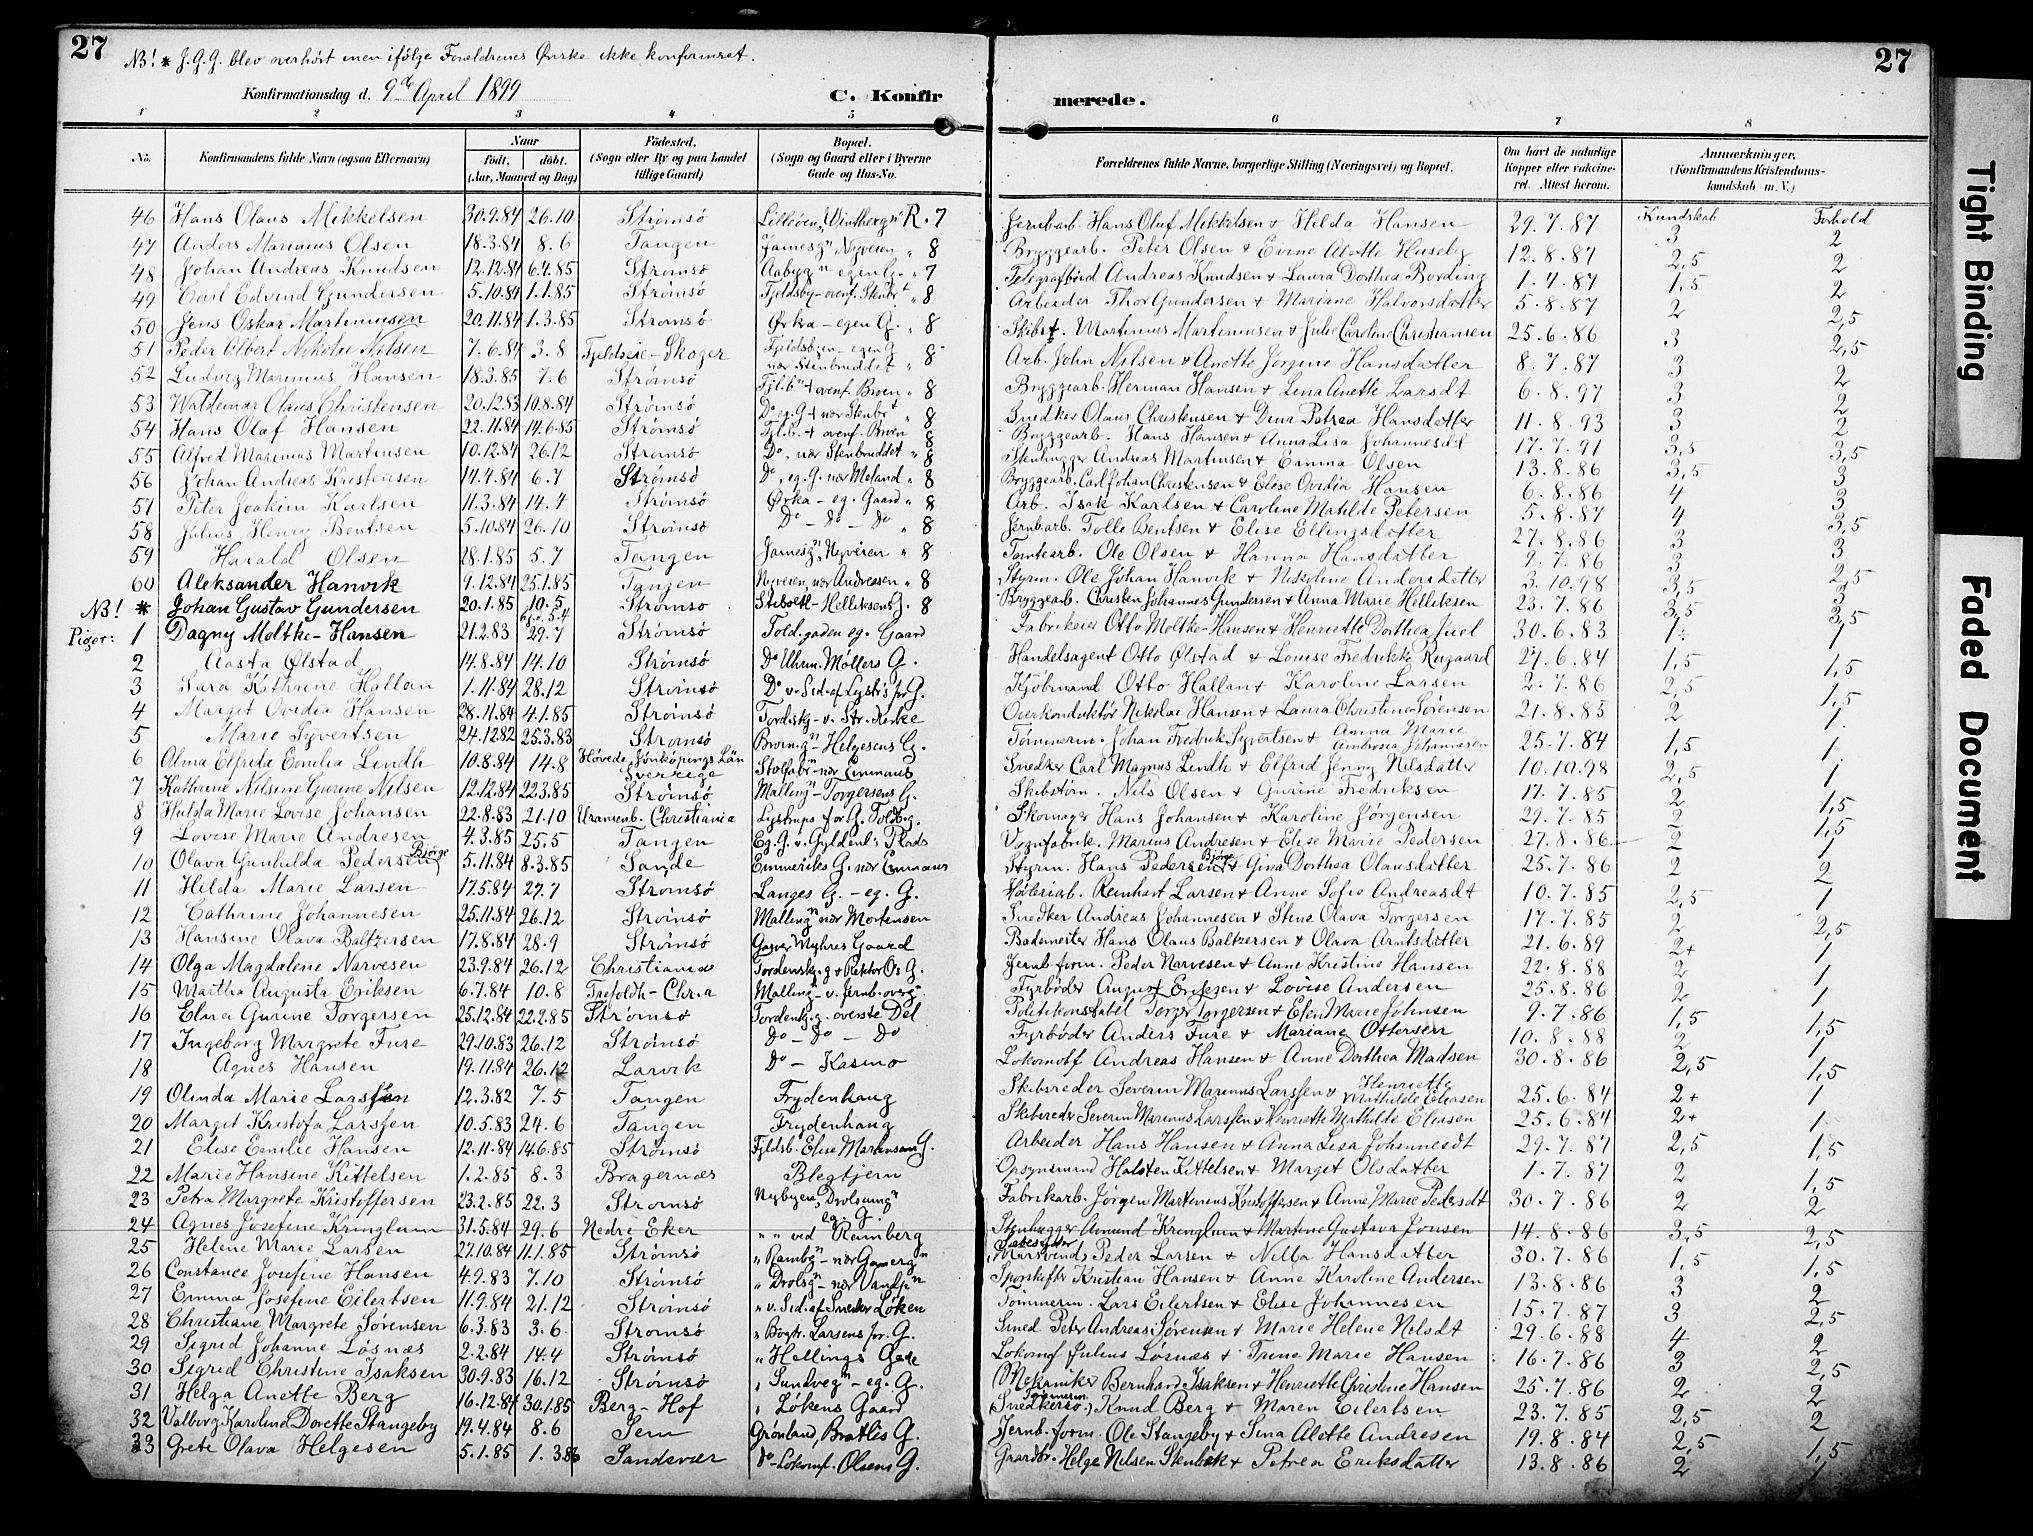 27
NB! * J.G.G. blev overhört men ifölge Forældrenes Ønske ikke konfirmeret.
Konfirmationsdag d. 9de April 1899
C. Konfir
merede.
27
1 2 3 4 5 6 7 8
No. Konfirmandens fulde Navn (ogsaa Efternavn) Naar födt. döbt. (Aar, Maaned og Dag) Födested. (Sogn eller By og paa Landet tillige Gaard) Bopæl. (Sogn og Gaard eller i Byerne Gade og Hus-No. Forældrenes fulde Navne, borgerlige Stilling (Næringsvei) og Bopæl. Om havt de naturlige Kopper eller vaccineret. Attest herom. Anmærkninger. (Konfirmandens Kristendomskundskab m. V.)
Kundskab Forhold
46 Hans Olaus Mikkelsen 30.9.84 26.10 Strømsö R. 7 Jernbarb. Hans Oluf Mikkelsen + Hilda Hansen 29.7.87 3 2
47 Anders Marinius Olsen 18.3.84 8.6 Tangen Jamesgn Nyveien " 8 Bryggearb. Peter Olsen + Evine Alette Huseby 12.8.87 2,5 2
48 Johan Andreas Knudsen 12.12.84 6.4.85 Strømsö Aabygn egen G. " 7 Telegrafbud Andreas Knudsen + Laura Dorthea Bording 1.4.87 1,5 2
49 Carl Edvind Gundersen 5.10.84 1.1.85 Strømsö Fjeldsby - ovenf. Stenbrt " 8 Arbeider Thor Gundersen + Mariane Halvorsdatter 5.8.87 2 2,5
50 Jens Oskar Martiniusen 20.11.84 1.3.85 Strømsö Ørka - egen G. " 8 Skibst. Martinius Martiniusen + Julie Caroline Christiansen 25.6.86 3 2,5
51 Peder Albert Nikolai Nilsen 7.6.84 3.8 Fjeldseie - Skoger Fjeldsbyen - egen G. nær Stenbruddet " 8 Arb. John Nilsen + Anette Jørgine Hansdatter 8.7.87 3 2
52 Ludvig Marinius Hansen 18.3.85 7.6 Strømsö Fjlbn + ovenf. Broen " 8 Bryggearb. Herman Hansen + Lina Anette Larsdt 6.8.97 3 2
53 Waldemar Olaus Christensen 20.12.83 10.8.84 Strømsö Do eg. G + nær Stenbrt " 8 Snedker Olaus Christensen + Dina Petrea Hansdatter 11.8.93 3 2
54 Hans Olaf Hansen 22.11.84 14.6.85 Strømsö Fjlb. + ovenf. Broen " 8 Bryggearb. Hans Hansen + Anna Lisa Johannesdt 17.7.91 3,5 3,5
55 Alfred Marinius Martinsen 10.12.84 26.12 Strømsö Do, nær Stenbruddet " 8 Stenhugger Andreas Martinsen + Emma Olsen 13.8.86 3,5 3
56 Johan Andreas Kristensen 14.4.84 6.7 Strømsö Do, eg. G. nær Meland " 8 Bryggearb. Carl Johan Christensen + Elise Ovidia Hansen 6.8.86 4 3
57 Peter Joakim Karlsen 11.3.84 14.4 Strømsö Ørka - eg. Gaard " 8 Arb. Isak Karlsen + Caroline Matilde Petersen 5.8.87 4 3,5
58 Julius Henry Bentsen 5.10.84 26.10 Strømsö Do - Do - Do " 8 Jernbarb. Tolle Bentsen + Elise Ellingsdatter 27.8.86 3 3
59 Harald Olsen 28.1.85 5.7 Tangen Jamesgn, Nyveien " 8 Tomtearb. Ole Olsen + Hanna Hansdatter 9.7.86 3 2,5
60 Aleksander Hanvik 9.12.84 25.1.85 Tangen Nyveien, nær Andreasen " 8 Styrm. Ole Johan Hanvik + Nikoline Andersdatter 3.10.98 3,5 3
NB! * Johan Gustav Gundersen 20.1.85 10.5 Strømsö Helliksens G. 8 Bryggearb. Christen Johannes Gundersen + Anna Marie Helliksen 23.7.86 3,5 3,5
Piger: 1 Dagny Moltke-Hansen 21.2.83 29.7 Strømsö Toldgaden eg. Gaard Fabrikeier Otto Moltke-Hansen + Henriette Dorthea Juel 30.6.83 1÷ 1
2 Aasta Ølstad 14.8.84 14.10 Strømsö Do Uhrm. Møllers G. Handelsagent Otto Ølstad + Louise Fredrikke Rugaard 27.6.84 1,5 1,5
3 Sara Kathrine Hallan 1.11.84 28.12 Strømsö Do v. Sid. af Lystrs for G. Kjöbmand Otto Hallan + Karoline Larsen 2.7.86 2,5 1,5
4 Margit Ovidia Hansen 28.11.84 4.1.85 Strømsö Tordskg. v. Str. Kirke Overkonduktör Nikolai Hansen + Laura Christine Sørensen 21.8.85 2 1.
5 Marie Syvertsen 24.12.82 25.3.83 Strømsö Bromgn - Helgesens G. Tömmerm. Johan Fredrik Syvertsen + Anna Marie Ambrosia Johannesen 25.7.84 1,5 1
6 Alma Elfrida Emilia Lindh 10.8.84 14.8 Høvede, Jönköpings Län Sverrige Stolfabr. nær Emmaus Snedker Carl Magnus Lindh + Elfrid Jenny Nilsdatter 10.10.98 2,5 1
7 Kathrine Nilsine Gurine Nilsen 12.12.84 22.3.85 Strømsö Mallingn - Torgersens G. Skibstøm. Nils Olsen + Gurine Fredriksen 17.7.85 2 1,5
8 Hulda Marie Lovise Johansen 22.8.83 21.10 Uranienb. Christiania Lystrups for G. Toldbg. Skomager Hans Johansen + Karoline Jørgensen 29.7.85 2 1,5
9 Lovise Marie Andresen 4.3.85 25.5 Tangen Eg. G. v. Gyldenl: Plads Vognfabrik. Marius Andresen + Elise Marie Pedersen 27.8.86 2 1
10 Olava Gunhilda Pedersen Bjørge 5.11.84 8.3.85 Sande Emmeriks G. nær Emmaus Styrm. Hans Pedersen Bjørge + Gina Dorthea Olausdatter 25.7.86 2 2
11 Hilda Marie Larsen 17.5.84 27.7 Strømsö Langes G. - eg. G. Høvleriab. Reinhart Larsen + Anne Sofie Andreasdt 10.7.85 2,5 1
12 Cathrine Johannesen 25.11.84 26.12 Strømsö Mallingn nær Mortensen Snedker Andreas Johannesen + Stine Olava Torgersen 17.7.85 2 2,5
13 Hansine Olava Baltzersen 17.8.84 28.9 Strømsö Gasver Myhres Gaard Bademester Hans Olaus Baltzersen + Olava Arntsdatter 21.6.89 2+ 1
14 Olga Magdalene Narvesen 23.9.84 26.12 Christiania Tordenskg. + Rektor Os G. Jernb. form. Peder Narvesen + Anne Kristine Hansen 22.8.88 2 1
15 Martha Augusta Eriksen 6.7.84 10.8 Trefoldh - Chr.a Mallingn - v. Jernb. overg. Fyrbøder August Eriksen + Lovise Andersen 25.8.86 2 1
16 Elna Gurine Torgersen 25.12.84 22.2.85 Strømsö Tordenskg. øverste Del Politikonstabel Torger Torgersen + Elen Marie Johnsen 9.7.86 1,5 1,5
17 Ingeborg Margrete Fure 29.10.83 26.12 Strømsö Do - Do - Do Fyrbøder Anders Fure + Mariane Ottersen 10.8.88 2 1
18 Agnes Hansen 19.11.84 26.12 Larvik Do - Kasino Lokomotf Andreas Hansen + Anne Dorthea Madsen 30.8.86 2,5 1,5
19 Olinda Marie Larssen 12.3.82 7.5 Tangen Frydenhaug Skibsreder Severin Marinus Larssen + Henriette Mathilde Eliasen 25.6.84 2+ 1
20 Margit Kristofa Larssen 10.5.83 24.6 Tangen Frydenhaug Skibsreder Severin Marinus Larssen + Henriette Mathilde Eliasen 25.6.84 2+ 1
21 Elise Emilie Hansen 12.11.84 14.6.85 Strømsö Fjeldsb. Elise Martinsens G. Arbeider Hans Hansen + Anna Lisa Johannesdt 29.7.87 2,5 1,5
22 Marie Hansine Kittelsen 1.2.85 8.3 Bragernæs Blegtjern Opsynsmand Halsten Kittelsen + Margit Olsdatter 1.7.87 2 1,5
23 Petra Margrete Kristoffersen 23.2.85 22.3 Strømsö Nybyen, Drolsumgn eg. G. Fabrikarb. Jörgen Martinius Kristoffersen + Anne Marie Pedersdt 30.7.86 2 2
24 Agnes Josefine Kringlum 31.5.84 29.6 Nedre Eker " " ved Ramberg Stenhugger Amund Kringlum + Martine Gustava Jonsen 14.8.86 3,5 2,5
25 Helene Marie Larsen 27.10.84 11.1.85 Strømsö " Rambgn - nær Gamergn Peder Larsen + Nilla Hansdatter 30.7.86 1,5 1,5
26 Constance Josefine Hansen 4.9.83 7.10 Strømsö " Drolsgn - nær Vandpn Sporskifter Kristian Hansen + Anne Karoline Andersen 13.8.86 3 2
27 Emma Josefine Eilertsen 11.9.84 21.12 Strømsö " v. Sid. af Snedker Løken Tømmerm. Lars Eilertsen + Elise Johannesen 15.7.87 3 2,5
28 Christiane Margrete Sørensen 6.3.83 3.6 Strømsö " Bogtr. Larsens for. G. Smed Peter Andreas Sørensen + Marie Helene Nilsdt 29.6.88 4 2
29 Sigrid Johanne Løsnæs 2.2.84 14.4 Strømsö " Hellings Gade Lokomof Julius Løsnæs + Trine Marie Hansen 16.7.86 3 2,5
30 Sigrid Christine Isaksen 30.9.83 16.12 Strømsö " Sundvegn - eg. G. Mekaniker Bernhard Isaksen + Henriette Christine Hansen 25.7.86 2 2
31 Helga Anette Berg 16.12.84 30.1.85 Berg - Hof " Løkens Gaard Knud Berg + Maren Eilertsen 23.7.85 2,5 2
32 Valborg Karoline Dorette Stangeby 19.4.84 8.6 Sem Grønland, Bratlis G. Jernb. form. Ole Stangeby + Sina Alette Andresen 19.8.84 2,5 1,5
33 Grete Olava Helgesen 5.1.85 1.3.86 Sandsvær Do - Lokomf. Olsens G. Gaardbr. Helge Nilsen Stenbek + Petrea Eriksdatter 13.8.86 2 1
Tight Binding
Faded Document